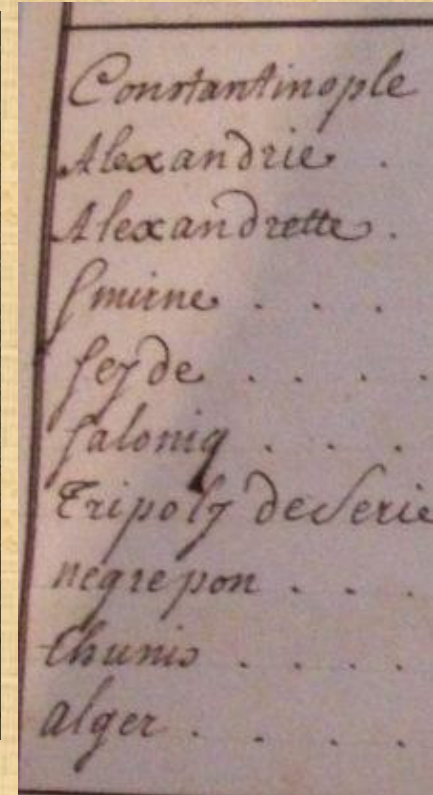 Constantinople
Alexandrie .
Alexandrette .
Smirne . . .
Seyde . . . .
Saloniq . . .
Tripoly de Serie
negrepon . . .
thunis . . . .
alger . . . .